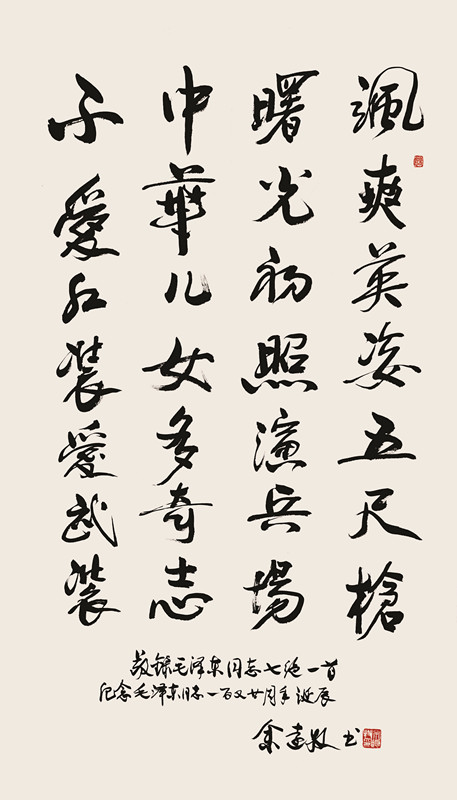 颯爽英姿五尺槍
曙光初照演兵場
中華儿女多奇志
不愛红装愛武装
敬錄毛泽东同志七绝一首
纪念毛泽东同志一百又廿周年诞辰
书